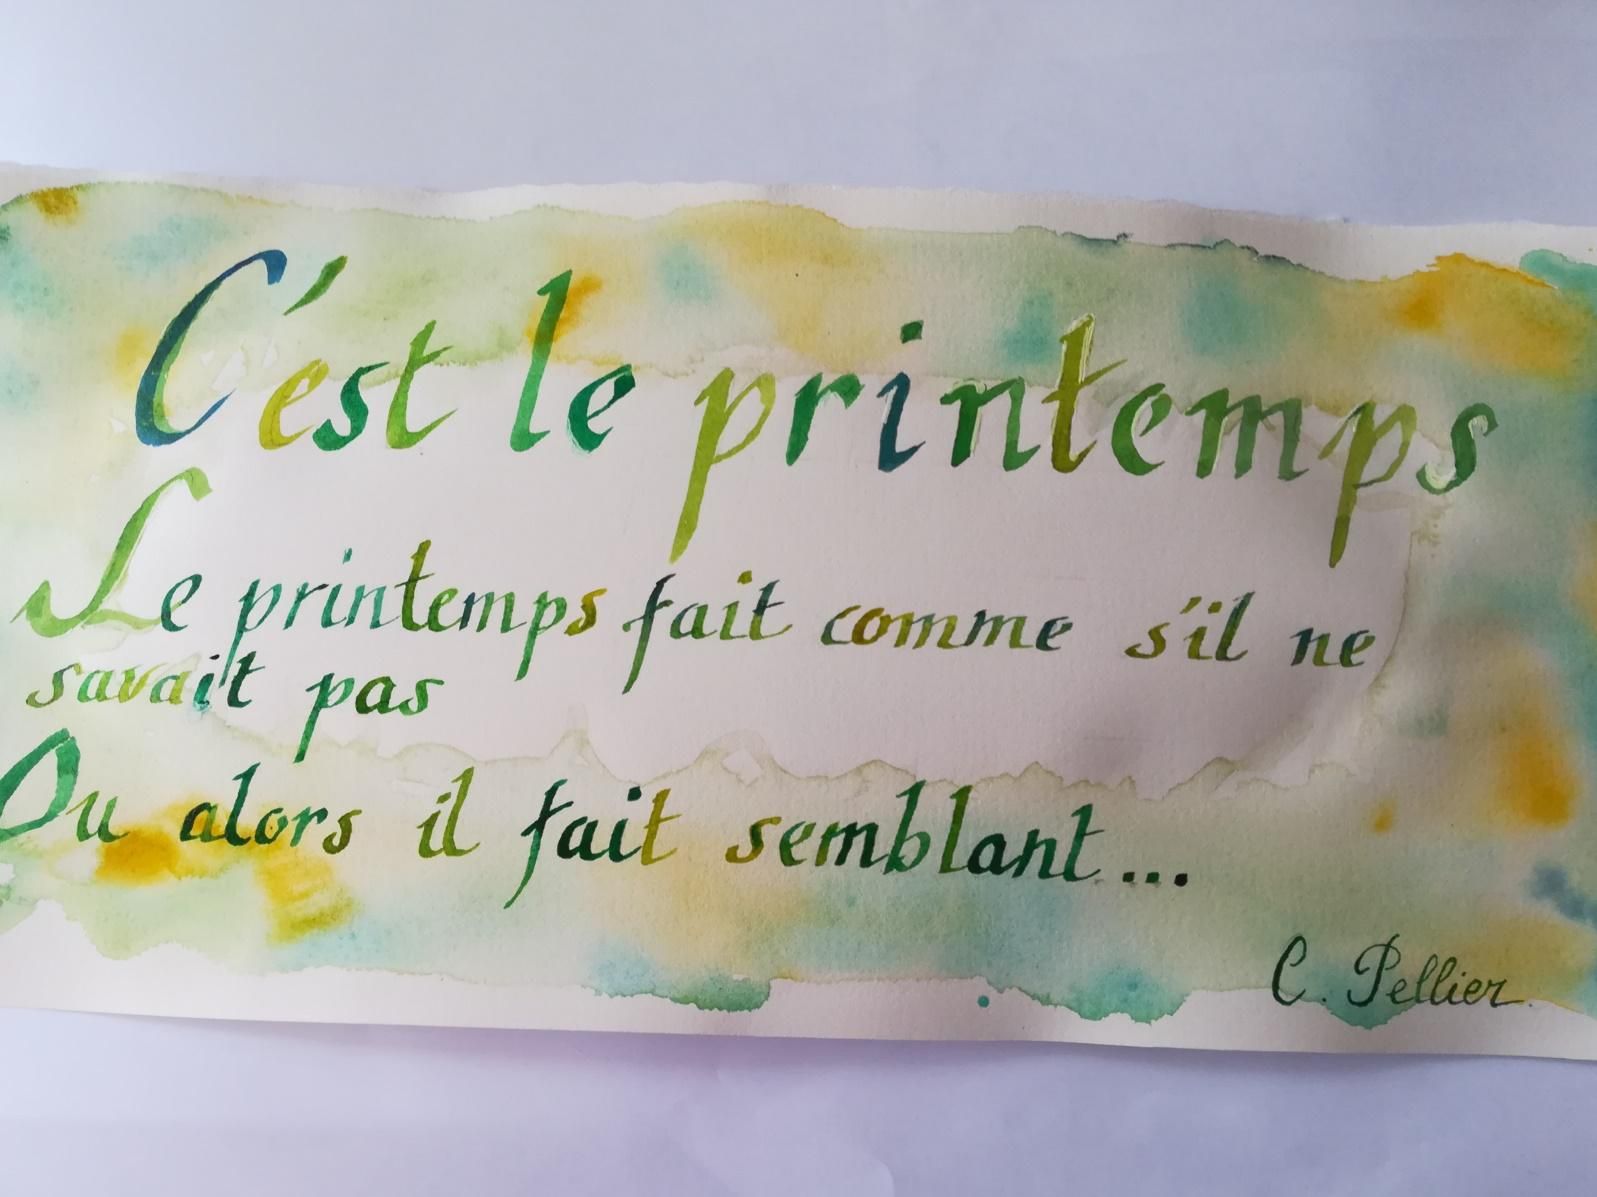 C'est le printemps
Le printemps fait comme s'il ne
savait pas
Ou alors il fait semblant...
C. Pellier